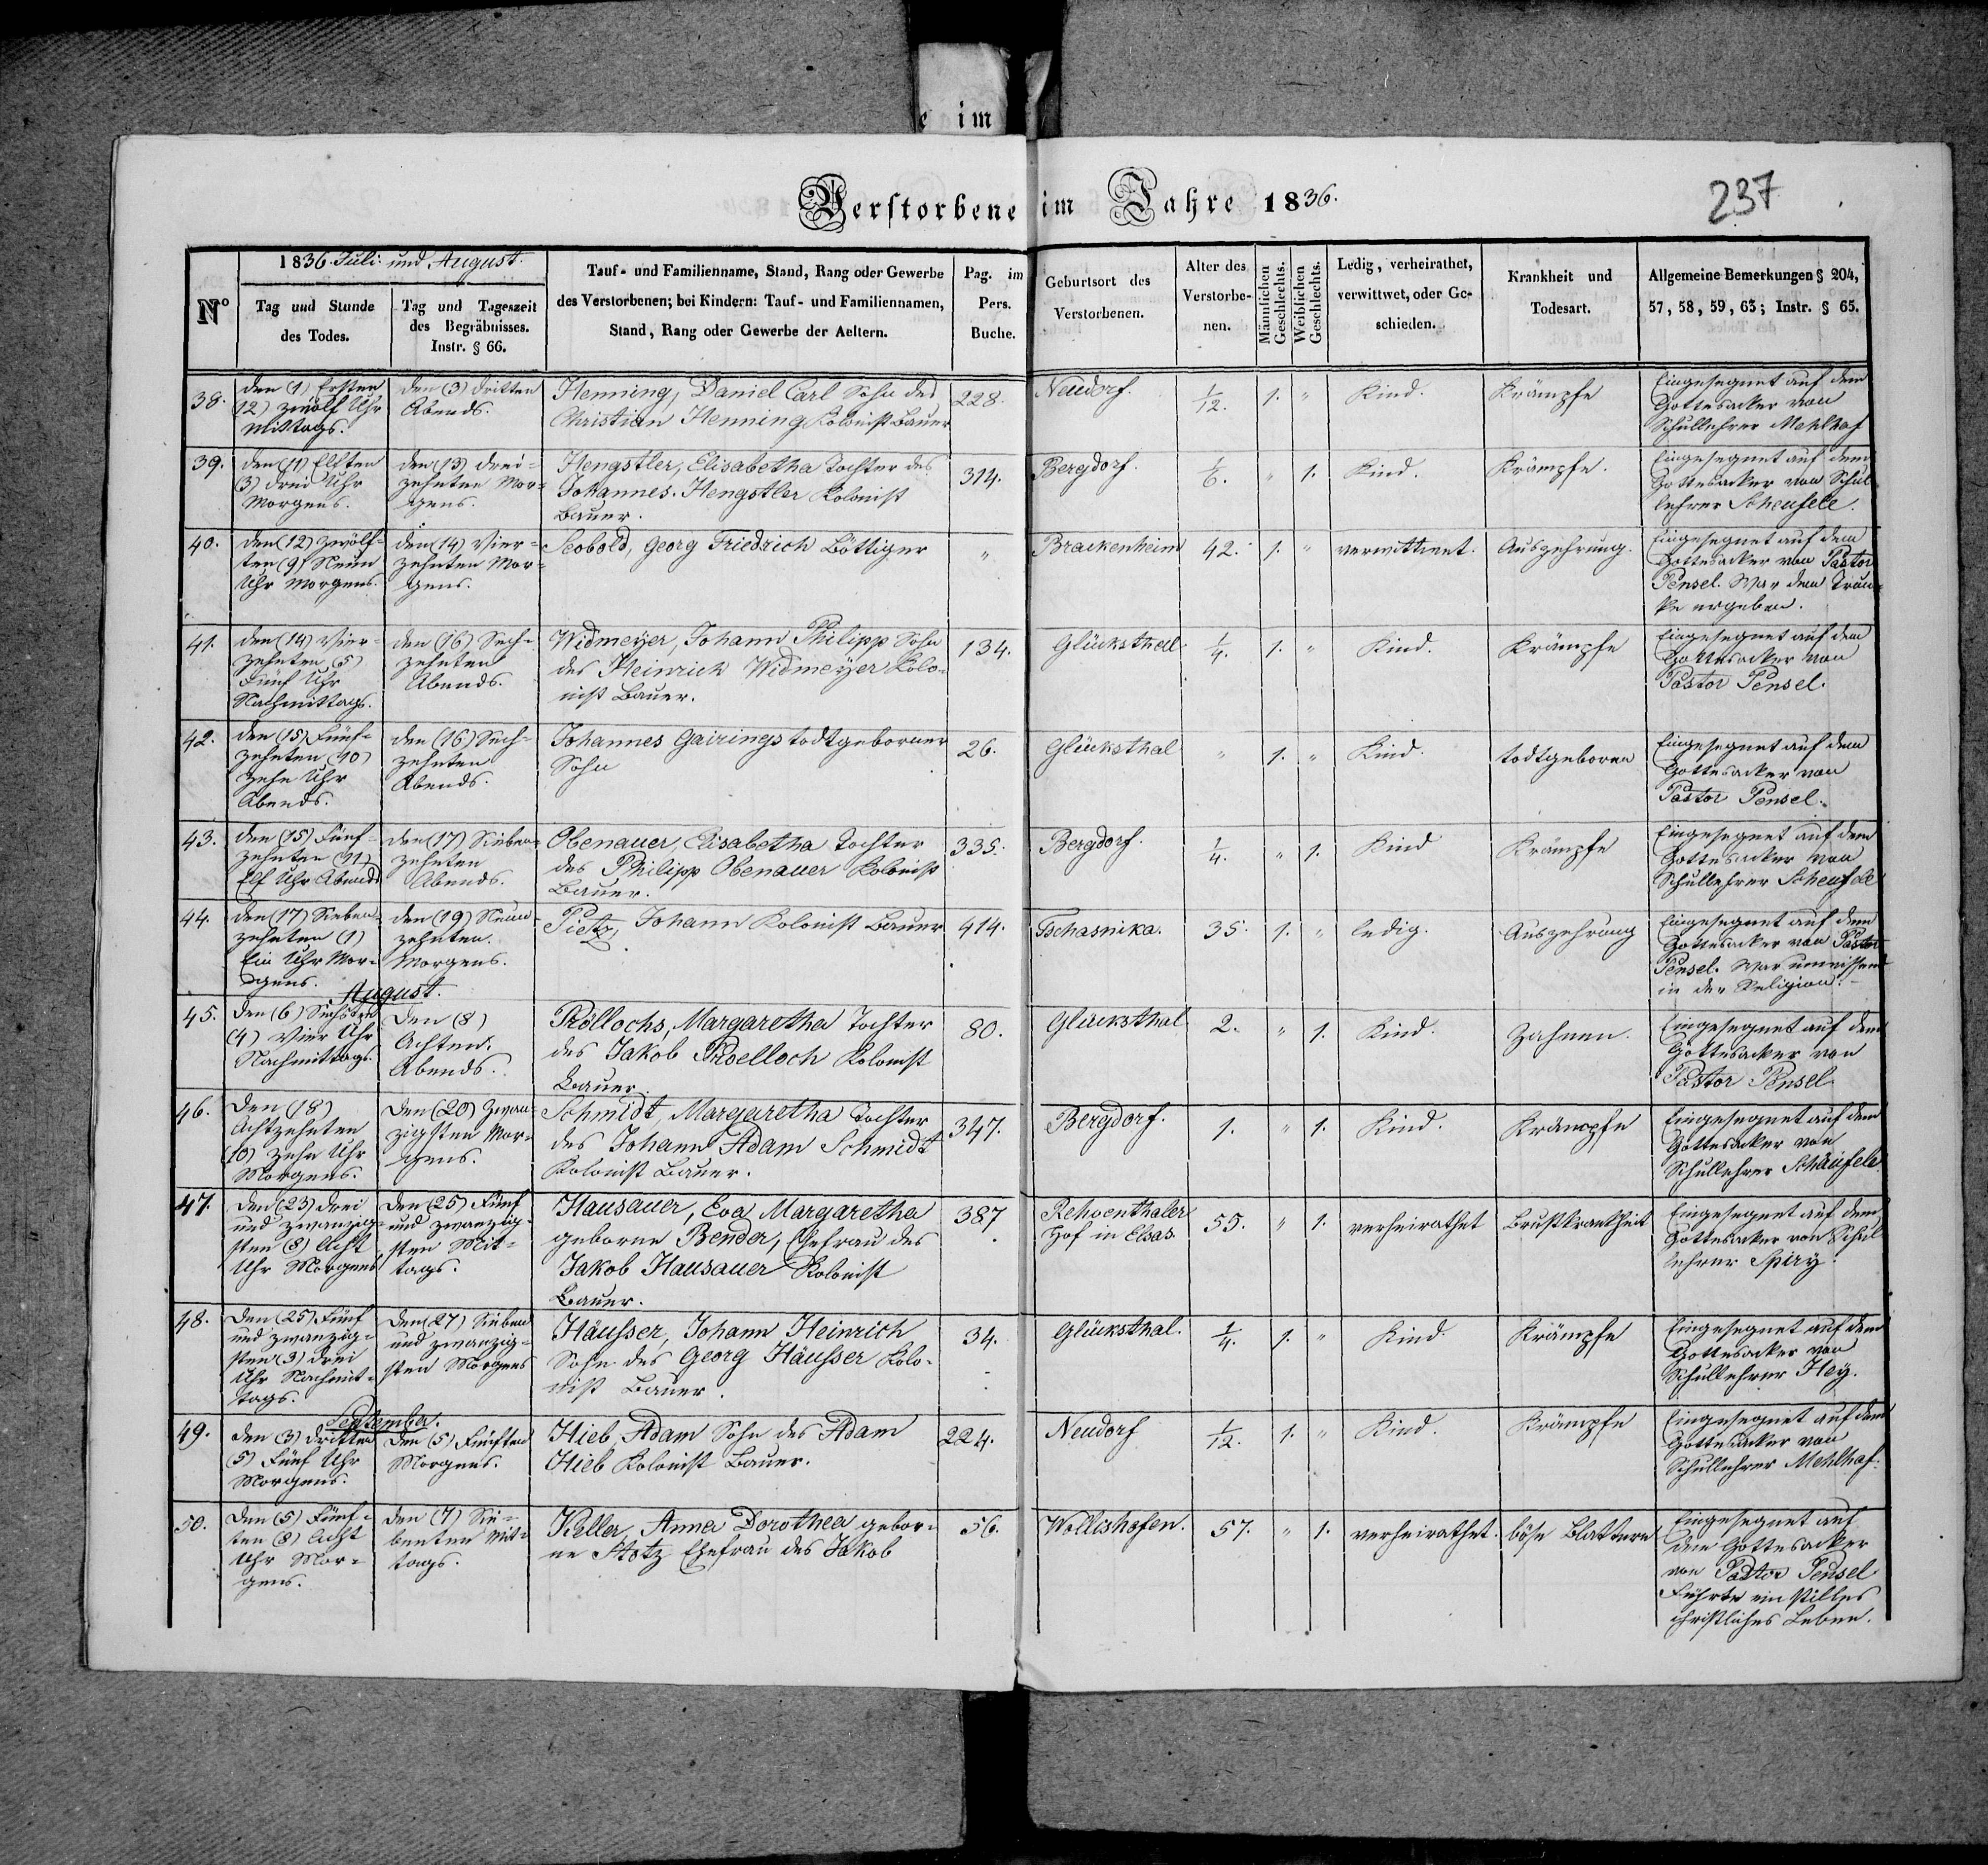 e im
Verstorbene im Jahre 1836.
237
1836. Juli und August.
Nº
Tag und Stunde
des Todes.
Tag und Tageszeit
des Begräbnisses.
Instr. § 66.
Tauf- und Familienname, Stand, Rang oder Gewerbe
des Verstorbenen; bei Kindern: Tauf- und Familiennamen,
Stand, Rang oder Gewerbe der Aeltern.
Pag. im
Pers.
Buche.
Geburtsort des
Verstorbenen.
Alter des
Verstorbe-
nen.
Männlichen
Geschlechts.
Weiblichen
Geschlechts.
Ledig, verheirathet,
verwittwet, oder Ge-
schieden.
Krankheit und
Todesart.
Allgemeine Bemerkungen § 204,
57, 58, 59, 63; Instr. § 65.
38.
den (1) Ersten
(12) zwölf Uhr
Mittags.
den (3) dritten
Abends.
Henning, Daniel Carl Sohn des
Christian Henning Kolonist Bauer
228.
Neudorf.
1/12.
1.
"
Kind.
Krämpfe
Eingesegnet auf dem
Gottesacker von
Schullehrer Mehlhaf
39.
den (11) Elften
(3) drei Uhr
Morgens.
den (13) drei-
zehnten Mor-
gens.
Hengstler, Elisabetha Tochter des
Johannes Hengstler Kolonist
Bauer.
314.
Bergdorf.
1/6.
"
1.
Kind.
Krämpfe.
Eingesegnet auf dem
Gottesacker von Schul
lehrer Scheufele.
40.
den (12) zwölf-
ten (9) Neun
Uhr Morgens.
den (14) Vier-
zehnten Mor-
gens.
Seobold, Georg Friedrich Böttiger
"
Brackenheim
42.
1.
"
verwittwet.
Auszehrung.
Eingesegnet auf dem
Gottesacker von Pastor
Pensel. War dem Trun-
ke ergeben.
41.
den (14) Vier-
zehnten (5)
Fünf Uhr
Nachmittags.
den (16) Sech-
zehnten
Abends.
Widmeyer, Johann Philipp Sohn
des Heinrich Widmeyer Kolo-
nist Bauer.
134.
Glücksthal
1/4.
1.
"
Kind.
Krämpfe
Eingesegnet auf dem
Gottesacker von
Pastor Pensel.
42.
den (15) Fünf-
zehnten (10)
Zehn Uhr
Abends.
den (16) Sech-
zehnten
Abends.
Johannes Gairings todtgeborner
Sohn
26.
Glücksthal
"
1.
"
Kind.
todtgeboren
Eingesegnet auf dem
Gottesacker von
Pastor Pensel.
43.
den (15) Fünf-
zehnten (11)
Elf Uhr Abends
den (17) Sieben-
zehnten
Abends.
Obenauer, Elisabetha Tochter
des Philipp Obenauer Kolonist
Bauer.
335.
Bergdorf.
1/4.
"
1.
Kind
Krämpfe
Eingesegnet auf dem
Gottesacker von
Schullehrer Scheufele
44.
den (17) Sieben-
zehnten (1)
Ein Uhr Mor-
gens.
den (19) Neun-
zehnten.
Morgens.
Pietz, Johann Kolonist Bauer
414.
Tschasnika.
35.
1.
"
ledig.
Auszehrung
Eingesegnet auf dem
Gottesacker von Pastor
Pensel. War unwissend
in der Religion.
August.
45.
den (6) Sechsten
(4) Vier Uhr
Nachmittags.
Den (8)
Achten.
Abends.
Röllochs, Margaretha Tochter
des Jakob Proelloch Kolonist
Bauer.
80.
Glücksthal
2.
"
1.
Kind.
Zahnen.
Eingesegnet auf dem
Gottesacker von
Pastor Pensel.
46.
Den (18)
Achtzehnten
(10) Zehn Uhr
Morgens.
Den (20) Zwan-
zigsten Mor-
gens.
Schmidt, Margaretha Tochter
des Johann Adam Schmidt
Kolonist Bauer.
347.
Bergdorf.
1.
"
1.
Kind.
Krämpfe
Eingesegnet auf dem
Gottesacker von
Schullehrer Schäufele.
47.
Den (23) drei
und zwanzig-
sten (8) Acht
Uhr Morgens
Den (25) Fünf
und zwanzig-
sten Mit-
tags.
Hausauer, Eva Margaretha
geborne Bender, Ehefrau des
Jakob Hausauer Kolonist
Bauer.
387
Hof in Elsas.
55.
"
1.
verheirathet
Brustkrankheit
Eingesegnet auf dem
Gottesacker von Schul
lehrer Spiry.
48.
Den (25) Fünf
und zwanzig-
sten (3) drei
Uhr Nachmit-
tags.
Den (27) Sieben
und zwanzig-
sten Morgens
Häusser, Johann Heinrich
Sohn des Georg Häusser Kolo-
nist Bauer.
34.
Glücksthal.
1/4.
1.
"
Kind.
Krämpfe
Eingesegnet auf dem
Gottesacker von
Schullehrer Hey.
September.
49.
den (3) dritten
(5) Fünf Uhr
Morgens.
Den (5) Fünften
Morgens.
Hieb, Adam Sohn des Adam
Hieb Kolonist Bauer.
224.
Neudorf
1/12.
1.
"
Kind.
Krämpfe
Eingesegnet auf dem
Gottesacker von
Schullehrer Mehlhaf.
50.
Den (5) Fünf-
ten (8) Acht
Uhr Mor-
gens.
den (7) Sie-
benten Mit-
tags.
Keller, Anna Dorothea gebor-
ne Stotz Ehefrau des Jakob
56.
Wollishofen.
57.
"
1.
verheirathet.
böse Blattern
Eingesegnet auf
dem Gottesacker
von Pastor Pensel
Führte ein stilles
christliches Leben.